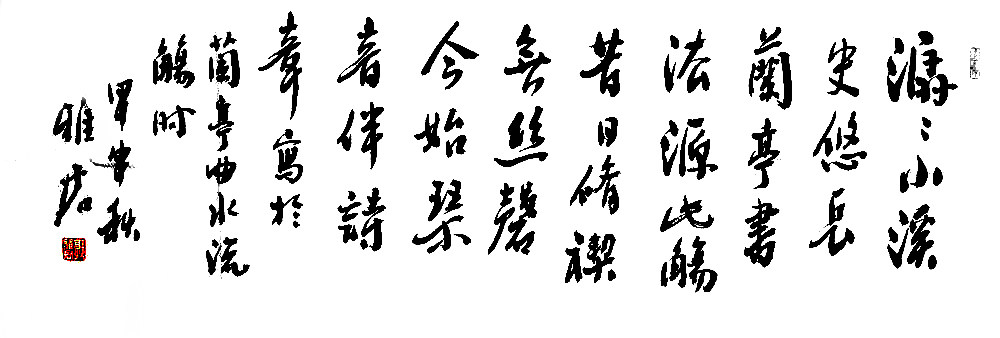 潺〻小溪
史悠長
蘭亭書
法源此觴
昔日脩禊
無絲磬
今始琴
音伴詩
章寫於
蘭亭曲水流
觴时
甲申秋
雅君